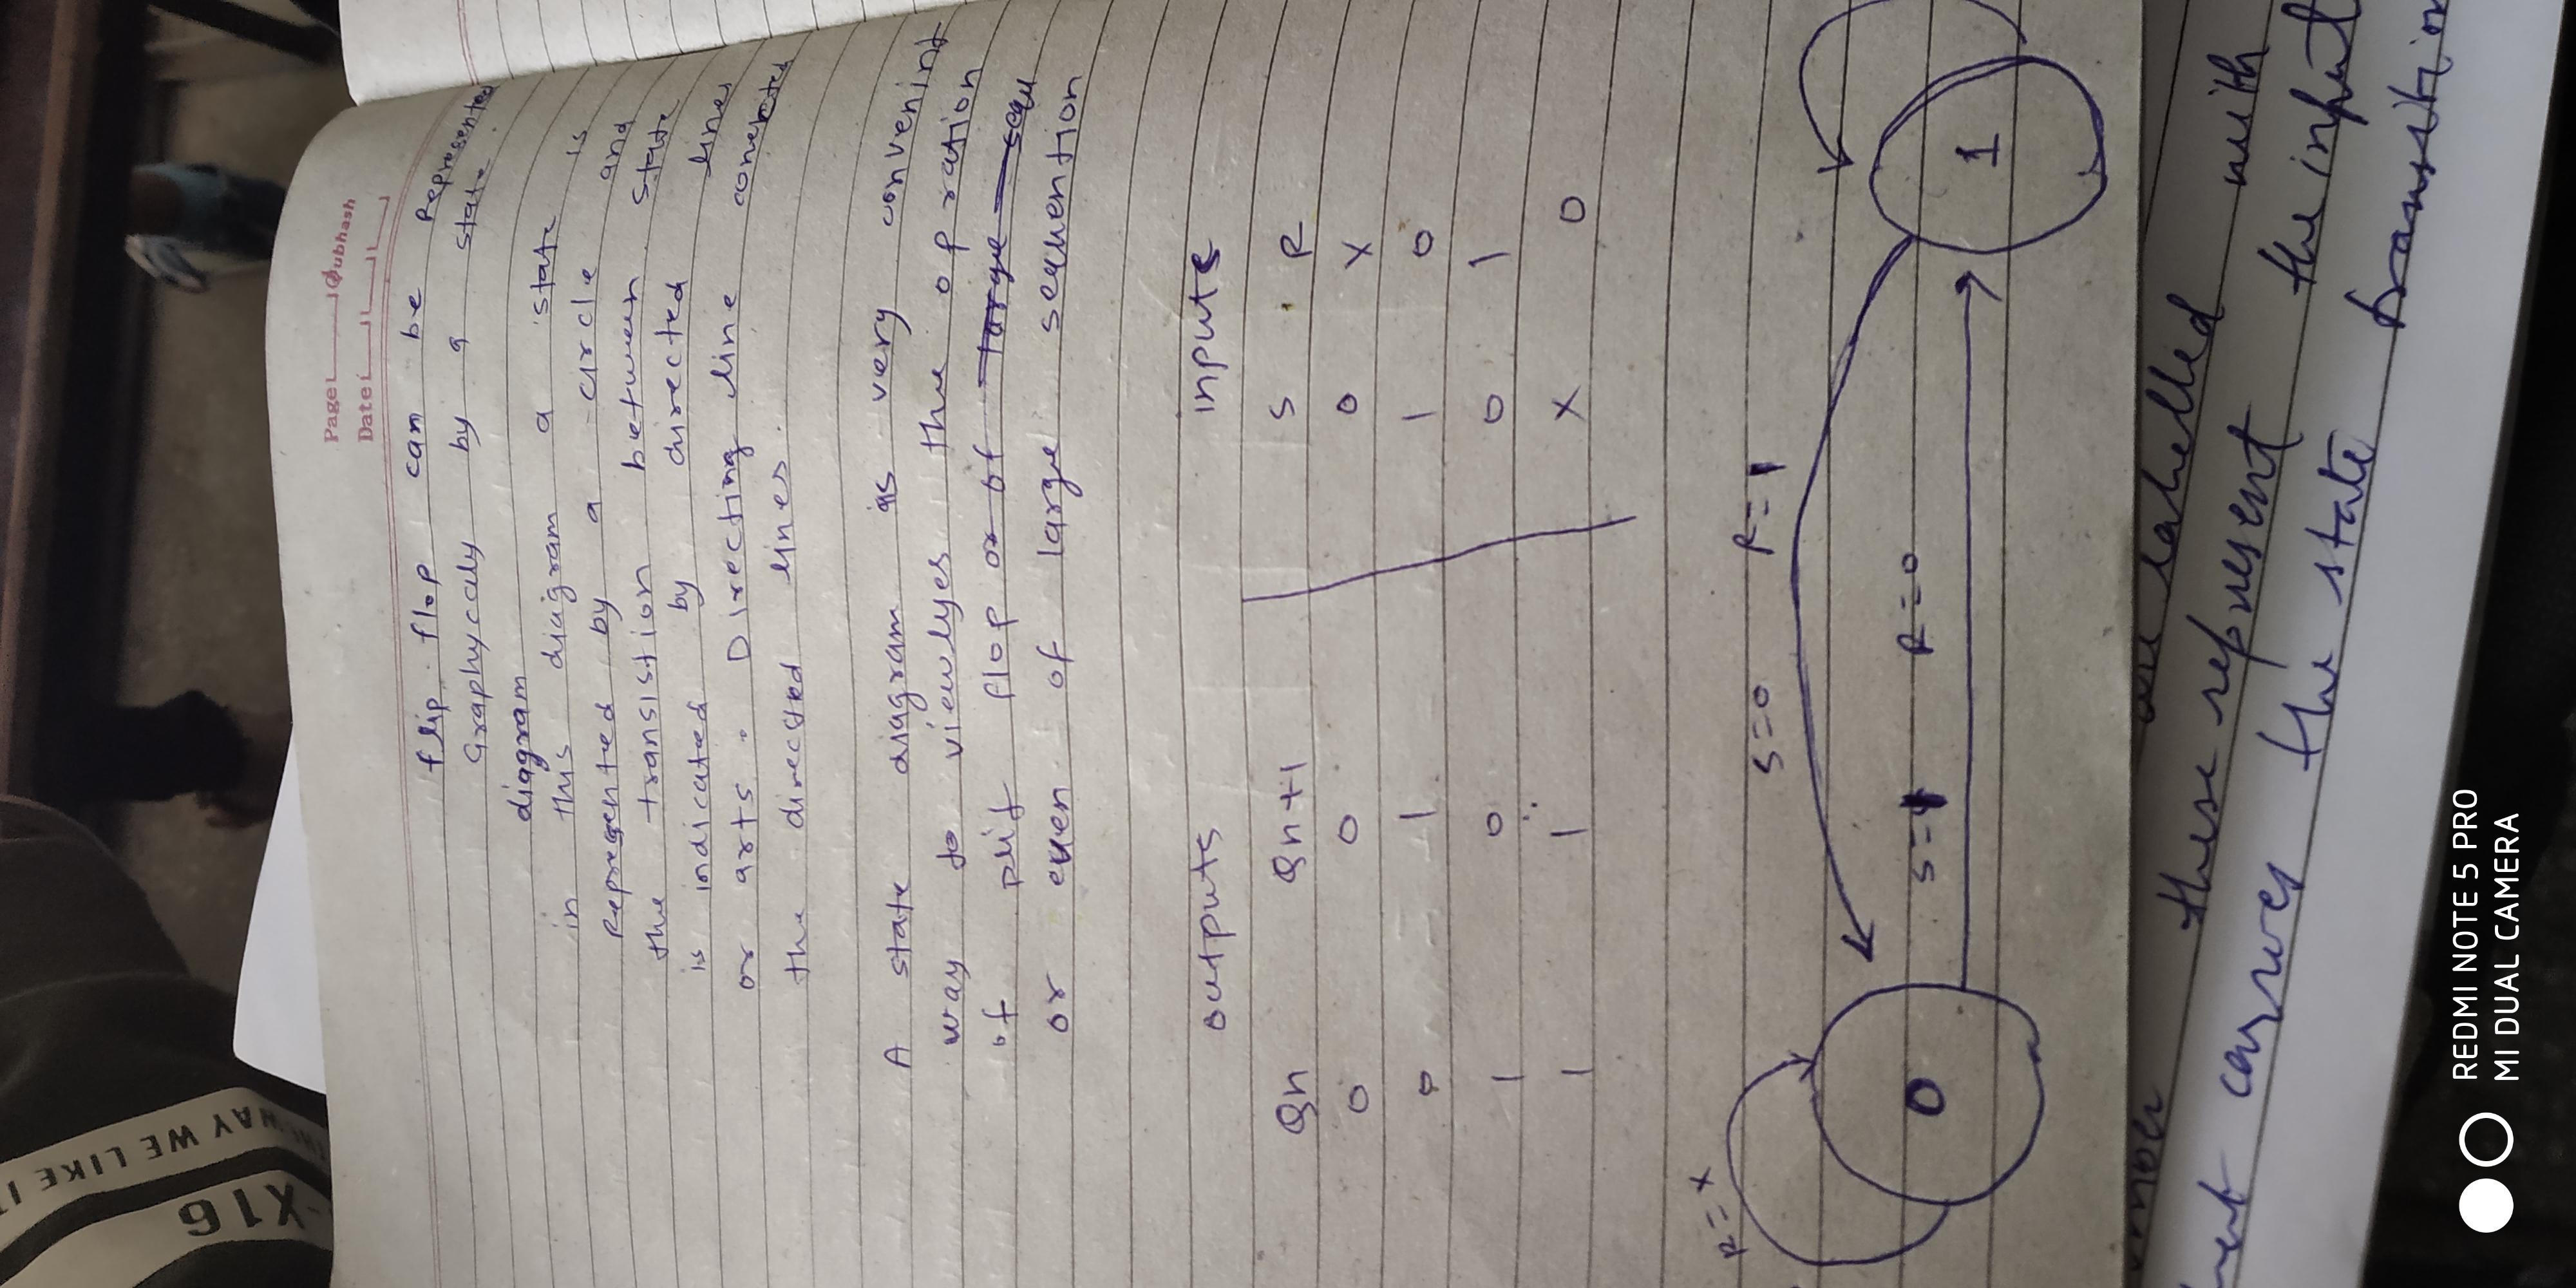 MAY WE LIKE I
X16
Page Subhash
Date
flip flop can be Represented
Graphyccaly by a state
diagram
in this diagram a state is
Represented by a circle and
the transistion between state
is indicated by directed lines
or arts. Directing line conected
the directed lines.
A state diagram is very convenint
way to viewlyes the opration
of plif flop or of large sequ
or even of large sequention
outputs inputs
Qn Qn+1 S R
0 0 0 X
0 1 1 0
1 0 0 1
1 1 X 0
R=X
S=0 R=1
S=1 R=0
0 1
are labelled with
these represent the input
carries the state transition
REDMI NOTE 5 PRO
MI DUAL CAMERA